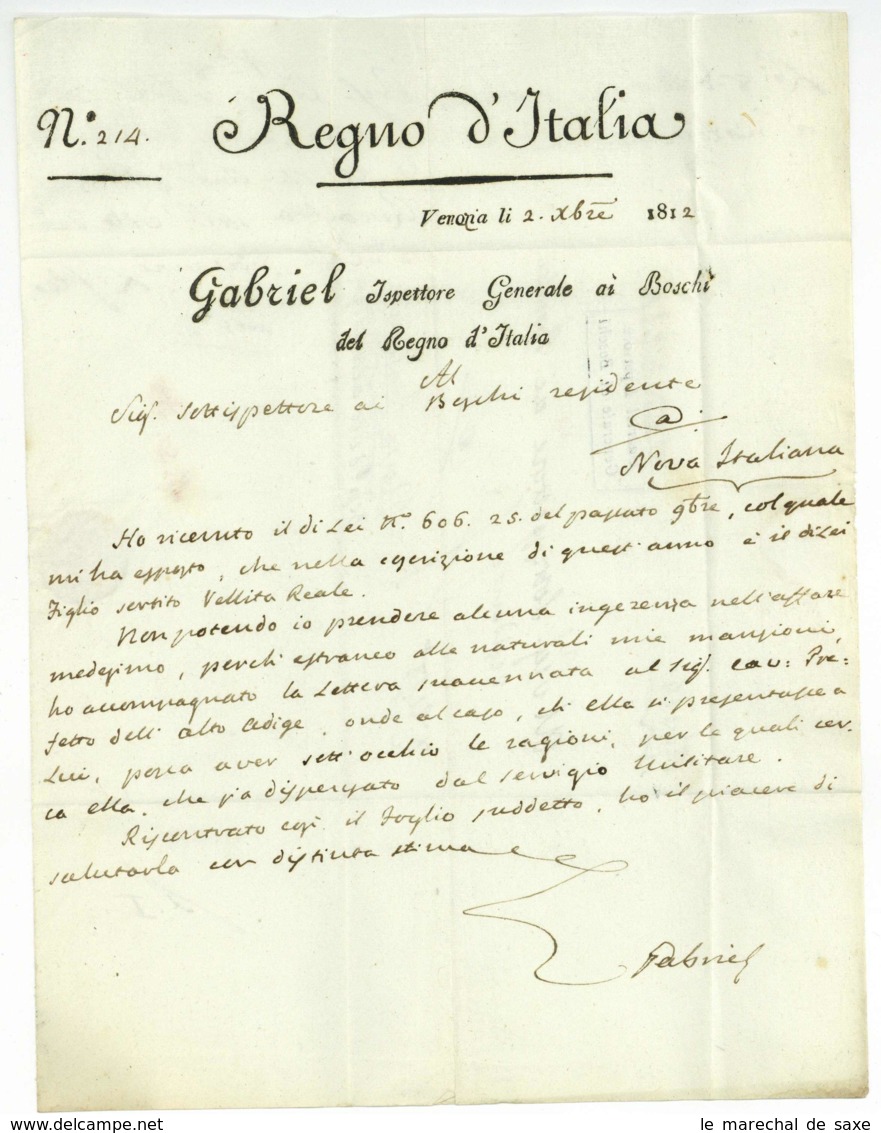 N.° 214. Regno d'Italia
Venezia li 2. Xbre 1812
Gabriel Ispettore Generale ai Boschi
del Regno d'Italia
Al
Sig. Sottispettore ai Boschi residente
a
Nova Italiana
Ho ricevuto il di Lei N.° 606. 25. del passato 9bre, col quale
mi ha esposto, che nella coscrizione di quest'anno è il di Lei
Figlio sortito Vellita Reale.
Non potendo io prendere alcuna ingerenza nell'affare
medesimo, perchè estraneo alle naturali mie mansioni,
ho accompagnato la Lettera succennata al Sig. Cav: Pre=
fetto dell'Alto Adige, onde al caso, ch'ella si presentasse a
Lui, possa aver sott'occhio le ragioni, per le quali cer=
ca ella, che sia dispensato dal servigio Militare.
Riscontrato così il Foglio suddetto, ho il piacere di
salutarla con distinta stima
Gabriel
le marechal de saxe